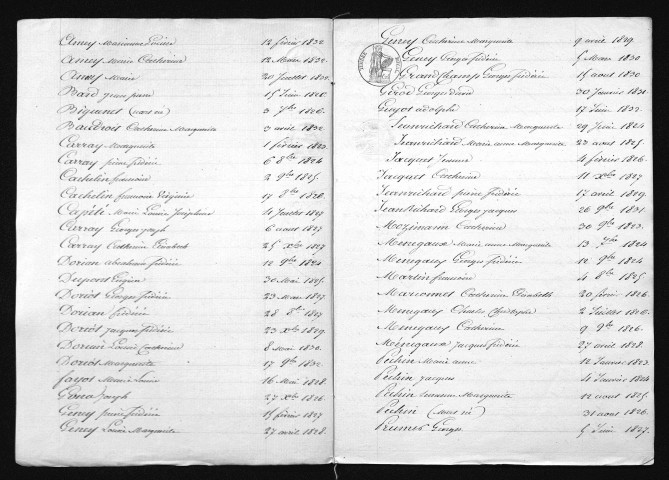 Amey Marianne Louise 12 février 1832
Amey Marie Catherine 12 Mars 1832.
Amey Marie 20 Juillet
Bard 15 Juin
Biguenet (mort né) 3 7bre 1826.
Baudrois Catherine Marguerite 3 avril 1832
Carray Marguerite 1 février 1823.
Carray pierre frédéric 6 8bre 1824
Cachelin françois 2 9bre 1825.
Cachelin françois Virginie 17 8bre 1826.
Marie Louise Joséphine 14 Juillet 1827
Carray Georges Joseph 6 aout 1827
Carray Catherine Elisabeth 25 Xbre 1827.
Dorian Abraham frédéric 12 9bre 1824
Dupont 30 Mai 1825.
Doriot Georges frédéric 23 Mars 1827.
Dorian frédéric 28 8bre 1827
Doriot Jacques frédéric 23 Xbre 1829.
Dorian Louise Catherine 8 Mai 1830.
Doriot Marguerite 17 9bre 1832.
fayot Marie Louise 16 Mai 1828.
Joseph 27 Xbre 1826.
Geney pierre frédéric 15 février 1827
Geney Louise Marguerite 27 avril 1828.
Geney Catherine Marguerite 9 avril 1829.
Geney Georges frédéric 5 Mars 1830
Grandchamp Georges frédéric 15 aout 1830
Georges David 30 Janvier 1831.
Guyot adolphe 17 Juin 1832.
Jeanrichard Catherine Marguerite 29 Juin 1824
Jeanrichard Marie anne Marguerite 23 aout 1825.
Jacquot 4 février 1826.
Jacquet Catherine 11 Xbre 1827
Jeanrichard pierre frédéric 17 avril 1829
Jeanrichard Georges Jacques 26 9bre 1831.
Catherine 30 9bre 1823.
Menegaux Marie anne Marguerite 13 7bre 1824
Mennegaux Georges frédéric 12 9bre 1824
Martin françoise 4 8bre 1825
Marconnet Catherine Elisabeth 20 février 1826.
Mennegaux Charles Christophe 2 Juillet 1826.
Mennegaux Catherine 9 9bre 1826.
Ménegaux Jacques frédéric 27 avril 1828.
Pechin Marie anne 12 Janvier 1823.
Pechin Jacques 4 Janvier 1824
Pechin Marguerite 12 aout 1825.
Pechin (mort né) 31 aout 1826.
Georges 5 Juin 1827.